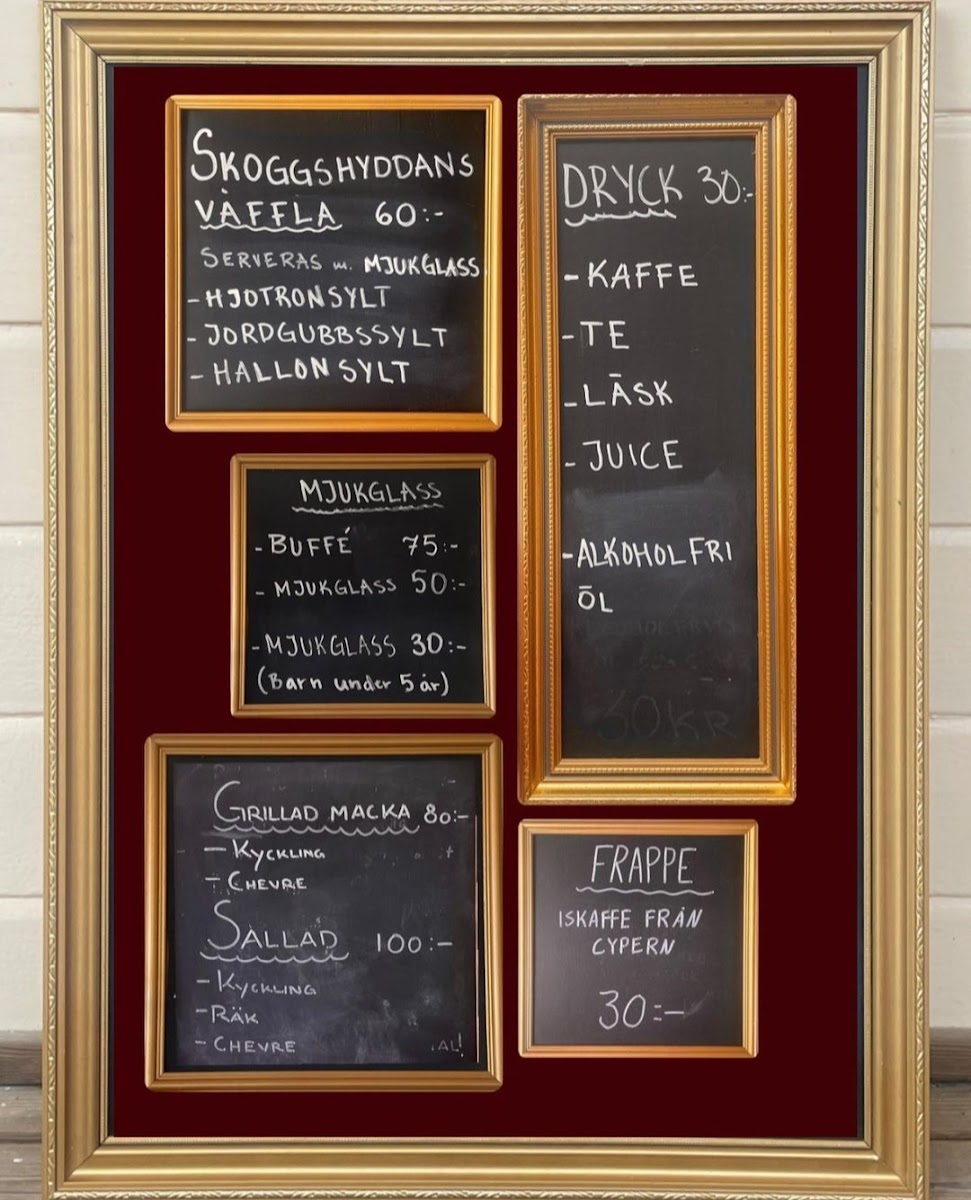 SKOGGSHYDDANS
VÅFFLA 60:-
SERVERAS m. MJUKGLASS
- HJOTRONSYLT
- JORDGUBBSSYLT
- HALLONSYLT
MJUKGLASS
- BUFFÉ 75:-
- MJUKGLASS 50:-
- MJUKGLASS 30:-
(Barn under 5 år)
GRILLAD MACKA 80:-
- KYCKLING
- CHEVRE
SALLAD 100:-
- KYCKLING
- RÄK
- CHEVRE
DRYCK 30:-
- KAFFE
- TE
- LÄSK
- JUICE
- ALKOHOLFRI
ÖL
30KR
FRAPPE
ISKAFFE FRÅN
CYPERN
30:-